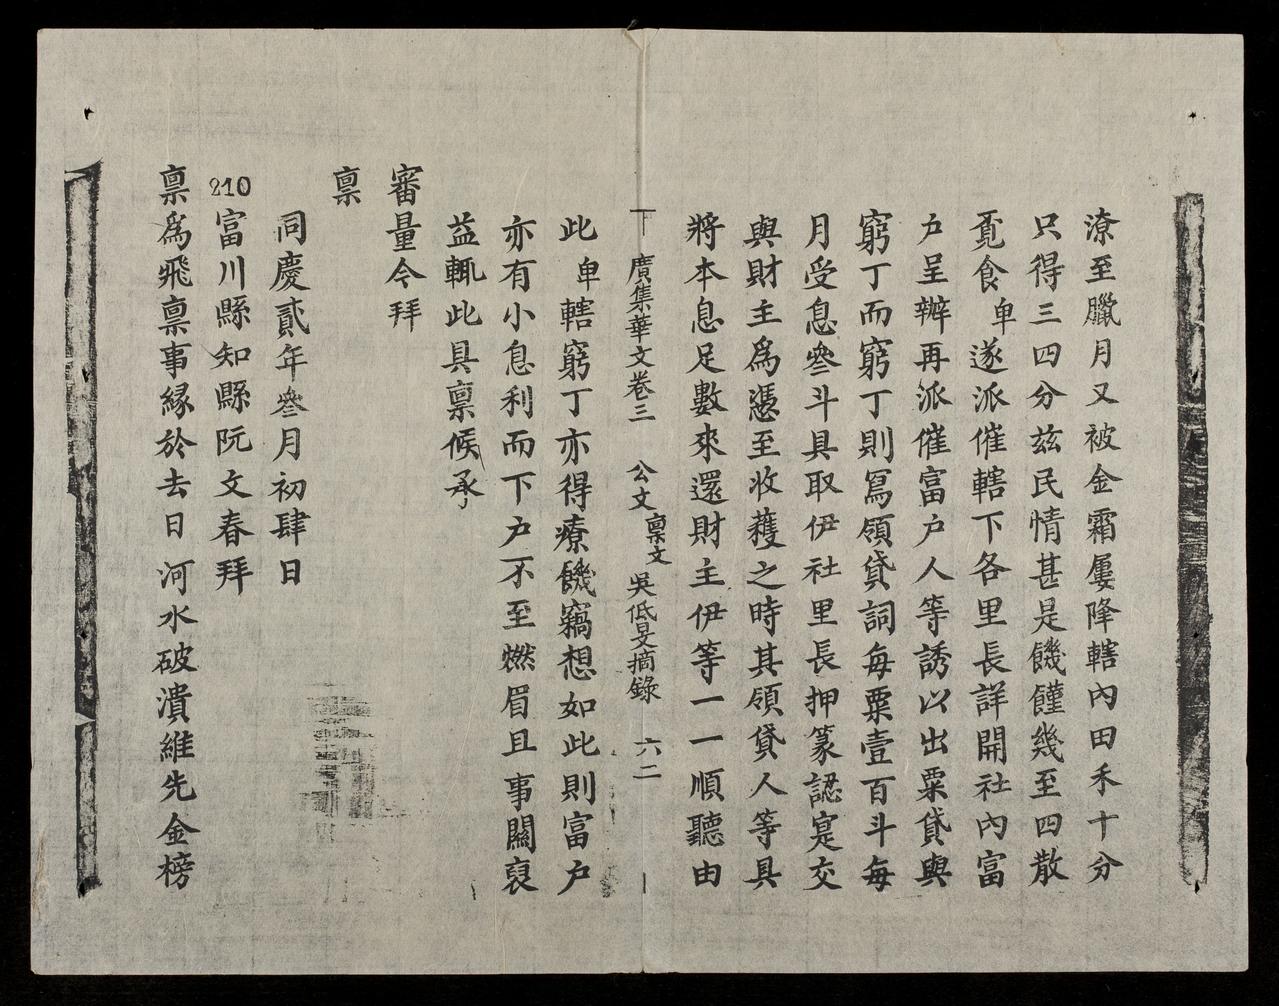 潦至臘月又被金霜屢降轄內田禾十分
只得三四分兹民情甚是饑饉幾至四散
覔食卑遂派催轄下各里長詳開社內富
户呈辦再派催富户人等誘以出粟貸與
窮丁而窮丁則寫領貸詞每粟壹百斗每
月受息叄斗具取伊社里長押篆認寔交
與財主爲憑至收穫之時其領貸人等具
將本息足數來還財主伊等一一順聽由
廣集華文卷三 公文 禀文 吳低旻摘錄 六二
此卑轄窮丁亦得療饑竊想如此則富户
亦有小息利而下户不至燃眉且事關裒
益輒此具禀候承
審量今拜
禀
同慶貳年叄月初肆日
210富川縣知縣阮文春拜
禀爲飛禀事緣於去日河水破潰維先金榜